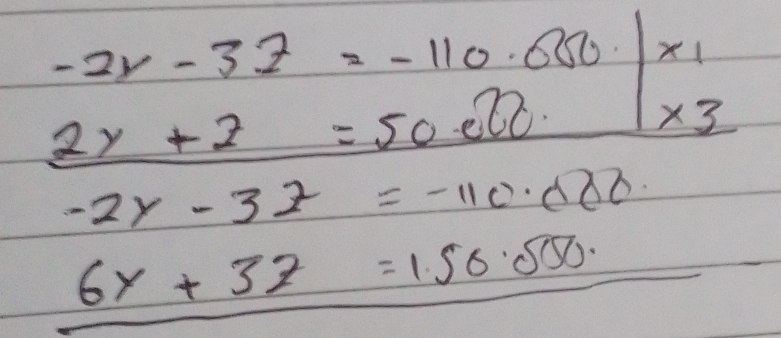 -2y - 3z = -110.000. | x1
2y + z = 50.000. | x3
-2y - 3z = -110.000.
6y + 3z = 150.000.